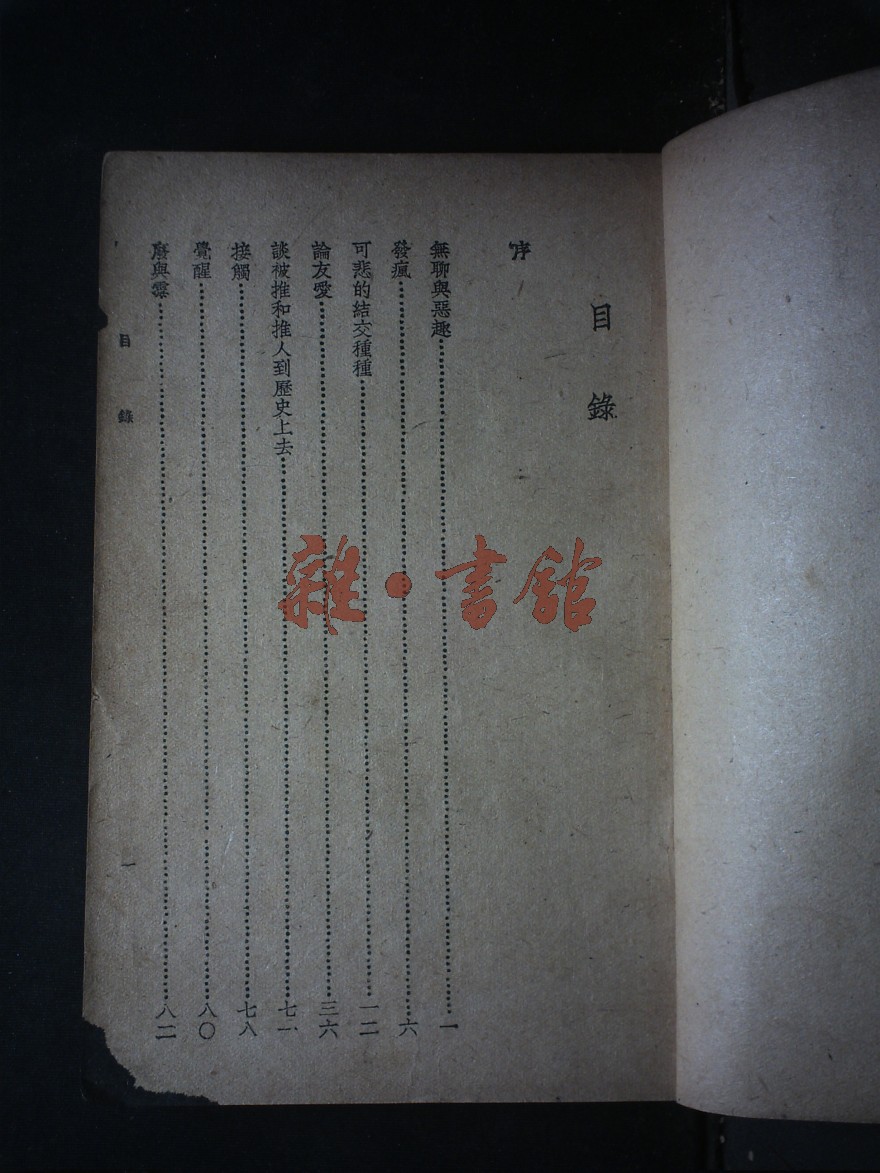 目錄
序
無聊與惡趣……一
發瘋……六
可悲的結交種種……一二
論友愛……三六
談被推和推人到歷史上去……七一
接觸……七八
覺醒……八〇
與……八二
目錄
一
雜·書館